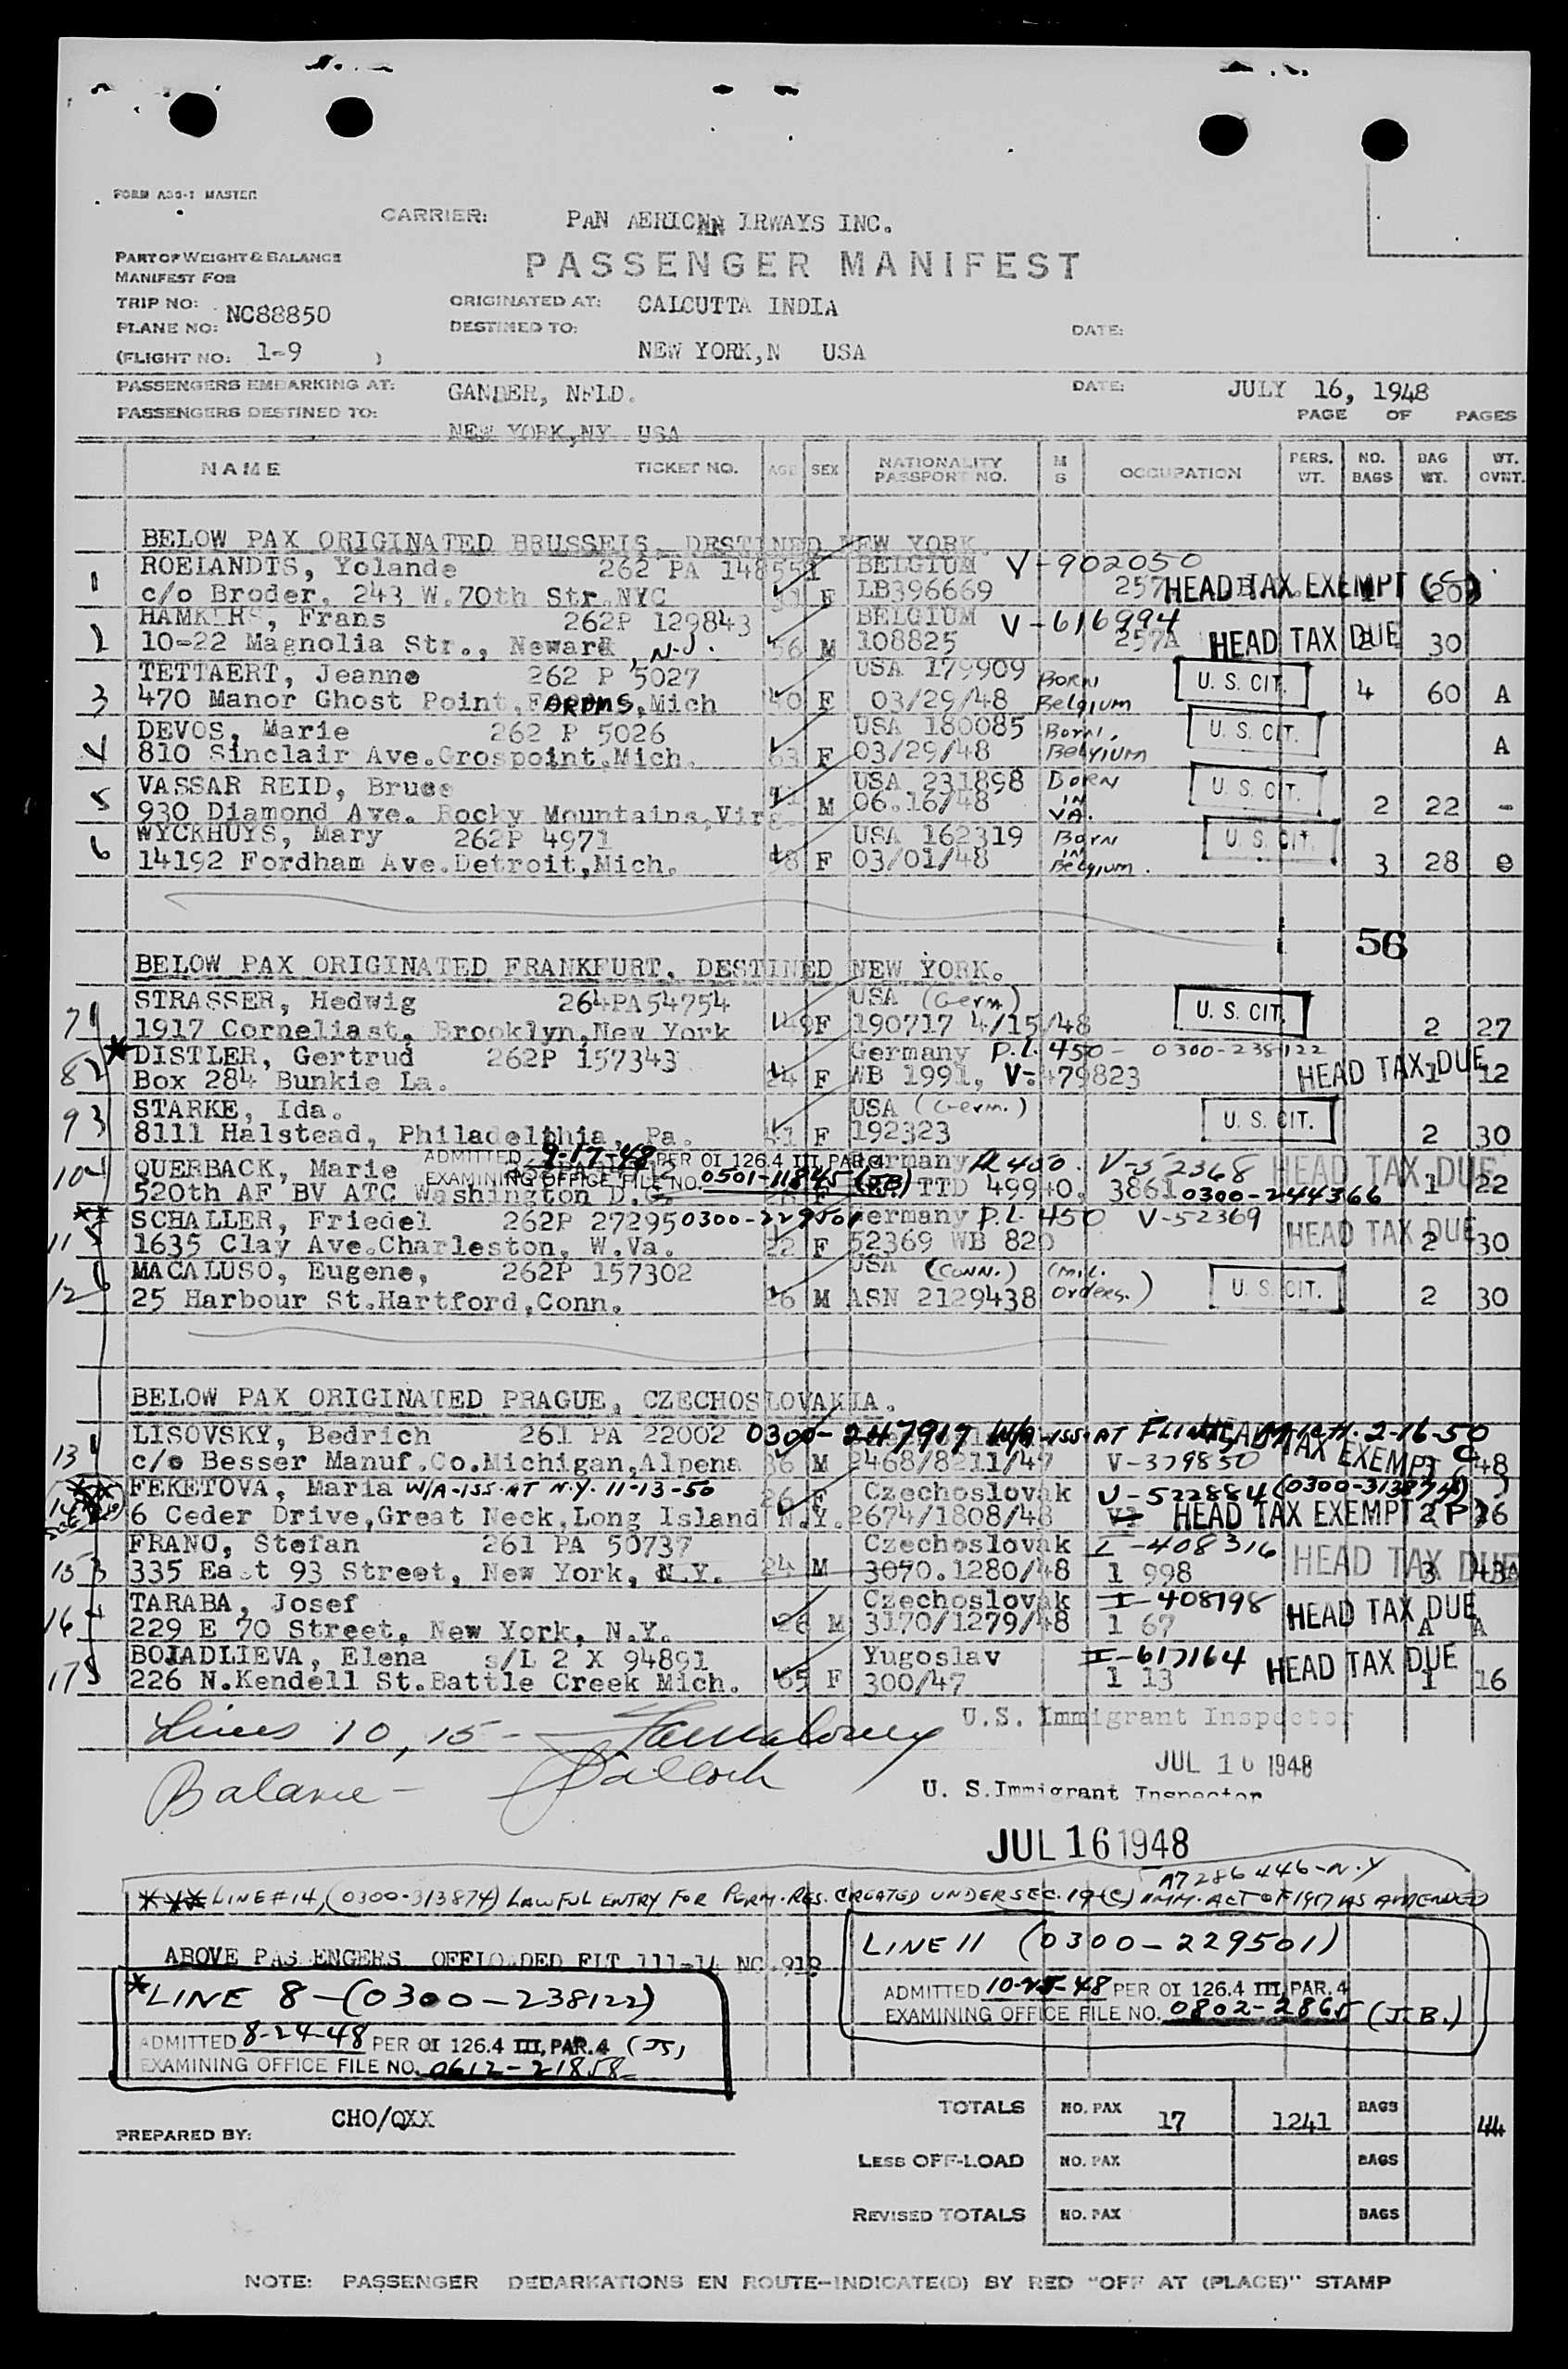 FORM A35-1 MASTER
CARRIER: PAN AERICAN IRWAYS INC.
PART OF WEIGHT & BALANCE
MANIFEST FOR
PASSENGER MANIFEST
TRIP NO:
PLANE NO: NC88850
ORIGINATED AT: CALCUTTA INDIA
DESTINED TO:
DATE:
(FLIGHT NO: 1-9 )
NEW YORK,N USA
PASSENGERS EMBARKING AT: GANDER, NFLD.
DATE: JULY 16, 1948
PASSENGERS DESTINED TO:
PAGE OF PAGES
NEW YORK,NY USA
NAME TICKET NO. AGE SEX NATIONALITY PASSPORT NO. M S OCCUPATION PERS. WT. NO. BAGS BAG WT. WT. OVNT.
BELOW PAX ORIGINATED BRUSSELS, DESTINED NEW YORK.
1 ROELANDTS, Yolande 262 PA 148551 BELGIUM V-902050
c/o Broder, 243 W.70th Str.NYC F LB396669 257 HEAD TAX EXEMPT
2 HAMKERS, Frans 262P 129843 BELGIUM V-616994
10-22 Magnolia Str., Newark, N.J. 56 M 108825 257A HEAD TAX DUE 30
3 TETTAERT, Jeanne 262 P 5027 USA 179909 BORN
470 Manor Ghost Point, FARMS, Mich 40 F 03/29/48 Belgium U. S. CIT. 4 60 A
4 DEVOS, Marie 262 P 5026 USA 180085 Born.
810 Sinclair Ave.Grospoint,Mich. 63 F 03/29/48 Belgium U. S. CIT. A
5 VASSAR REID, Bruce USA 231898 BORN
930 Diamond Ave. Rocky Mountains,Virg. M 06.16/48 IN VA. U. S. CIT. 2 22 -
6 WYCKHUYS, Mary 262P 4971 USA 162319 Born
14192 Fordham Ave.Detroit,Mich. 58 F 03/01/48 IN Belgium. U. S. CIT. 3 28 0
56
BELOW PAX ORIGINATED FRANKFURT, DESTINED NEW YORK.
7 1 STRASSER, Hedwig 264PA54754 USA (Germ)
1917 Corneliast, Brooklyn,New York 49 F 190717 4/15/48 U. S. CIT. 2 27
* DISTLER, Gertrud 262P 157343 Germany P.L. 450- 0300-238122
8 2 Box 284 Bunkie La. 24 F WB 1991, V-479823 HEAD TAX DUE 1 12
STARKE, Ida. USA (Germ.)
9 3 8111 Halstead, Philadelphia, Pa. 41 F 192323 U. S. CIT. 2 30
ADMITTED 9-17-48 PER OI 126.4 III, PAR. 4
10 4 QUERBACK, Marie Germany PL 450. V-52368 HEAD TAX DUE
EXAMINING OFFICE FILE NO. 0501-11845 (JB)
520th AF BV ATC Washington D.C. F TTD 49940. 3861 0300-244366 1 22
** SCHALLER, Friedel 262P 27295 0300-229501 Germany P.L. 450 V-52369
11 5 1635 Clay Ave.Charleston, W.Va. 22 F 52369 WB 820 HEAD TAX DUE 2 30
MACALUSO, Eugene, 262P 157302 USA (CONN.) (MIL.
12 6 25 Harbour St.Hartford,Conn. 26 M ASN 2129438 Orders.) U. S. CIT. 2 30
BELOW PAX ORIGINATED PRAGUE, CZECHOSLOVAKIA.
LISOVSKY, Bedrich 261 PA 22002 0300-247917 W/A-ISS. AT FLINT, MICH. 2-16-50
13 1 c/o Besser Manuf.Co.Michigan,Alpena 36 M 2468/8211/47 V-379850 HEAD TAX EXEMPT 48
*** FEKETOVA, Maria W/A-ISS. AT N.Y. 11-13-50 26 F Czechoslovak V-522884 (0300-313874)
14 6 Ceder Drive,Great Neck,Long Island N.Y. 2674/1808/48 HEAD TAX EXEMPT 2
FRANO, Stefan 261 PA 50737 Czechoslovak I-408316
15 3 335 East 93 Street, New York, N.Y. 24 M 3070.1280/48 1 998 HEAD TAX DUE 3
TARABA, Josef Czechoslovak I-408198
16 4 229 E 70 Street, New York, N.Y. 26 M 3170/1279/48 1 67 HEAD TAX DUE A A
BOJADLIEVA, Elena s/L 2 X 94891 Yugoslav I-617164
17 5 226 N.Kendell St.Battle Creek Mich. 65 F 300/47 1 13 HEAD TAX DUE 1 16
Lines 10, 15 - U.S. Immigrant Inspector
JUL 16 1948
Balance - U. S. Immigrant Inspector
JUL 16 1948
A7286446-N.Y
*** LINE #14, (0300-313874) LAWFUL ENTRY FOR PERM. RES. CREATED UNDER SEC. 19(C) IMM. ACT OF 1917 AS AMENDED
ABOVE PASENGERS OFFLOADED FLT 111-14 NC 918
LINE 11 (0300-229501)
ADMITTED 10-25-48 PER OI 126.4 III, PAR. 4
EXAMINING OFFICE FILE NO. 0802-2865 (J.B.)
* LINE 8-(0300-238122)
ADMITTED 8-24-48 PER OI 126.4 III, PAR. 4 (JS)
EXAMINING OFFICE FILE NO. 0612-21858
PREPARED BY: CHO/QXX
TOTALS NO. PAX 17 1241 BAGS 44
LESS OFF-LOAD NO. PAX BAGS
REVISED TOTALS NO. PAX BAGS
NOTE: PASSENGER DEBARKATIONS EN ROUTE-INDICATE(D) BY RED "OFF AT (PLACE)" STAMP